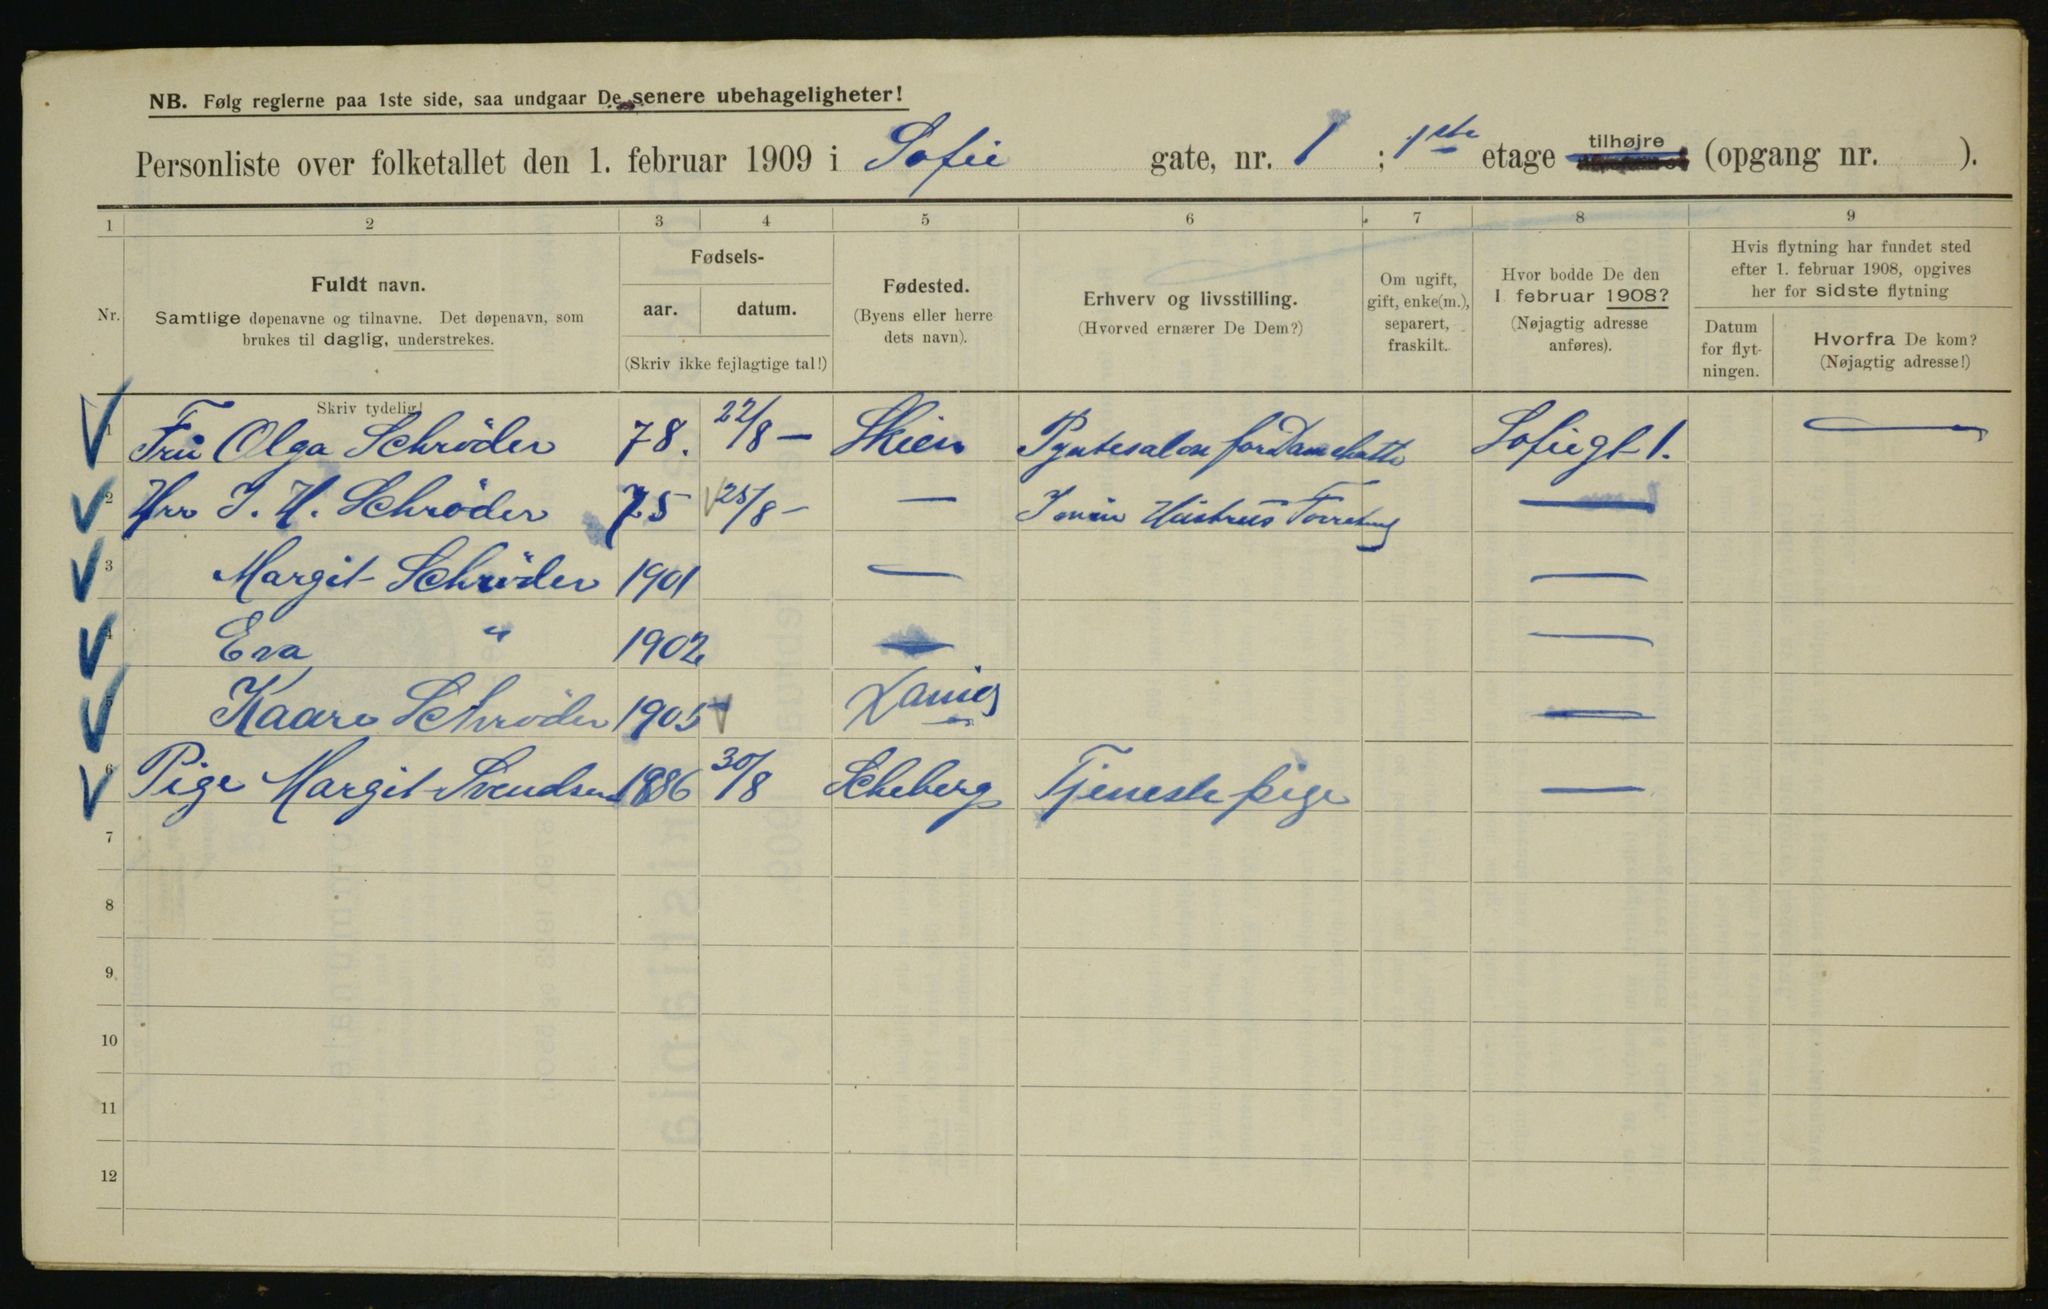 NB. Følg reglerne paa 1ste side, saa undgaar De senere ubehageligheter!
Personliste over folketallet den 1. februar 1909 i Sofie gate, nr. 1 ; 1ste etage tilhøjre (opgang nr. ).
1 2 3 4 5 6 7 8 9
Nr.
Fuldt navn.
Samtlige døpenavne og tilnavne. Det døpenavn, som
brukes til daglig, understrekes.
Skriv tydelig!
Fødsels-
aar. datum.
(Skriv ikke fejlagtige tal!)
Fødested.
(Byens eller herre
dets navn).
Erhverv og livsstilling.
(Hvorved ernærer De Dem?)
Om ugift,
gift, enke(m.),
separert,
fraskilt.
Hvor bodde De den
1 februar 1908?
(Nøjagtig adresse
anføres).
Hvis flytning har fundet sted
efter 1. februar 1908, opgives
her for sidste flytning
Datum
for flyt-
ningen.
Hvorfra De kom?
(Nøjagtig adresse!)
1 Fru Olga Schrøder 78. 22/8 — Skien Pyntesalon for Damehatte Sofiegt 1. —
2 Hrr J. H. Schrøder 75 25/8 — — I min Hustrus Forretning —
3 Margit Schrøder 1901 — —
4 Eva " 1902 — —
5 Kaare Schrøder 1905 —
6 Pige Margit Svendsen 1886 30/8 Tjeneste pige —
7
8
9
10
11
12